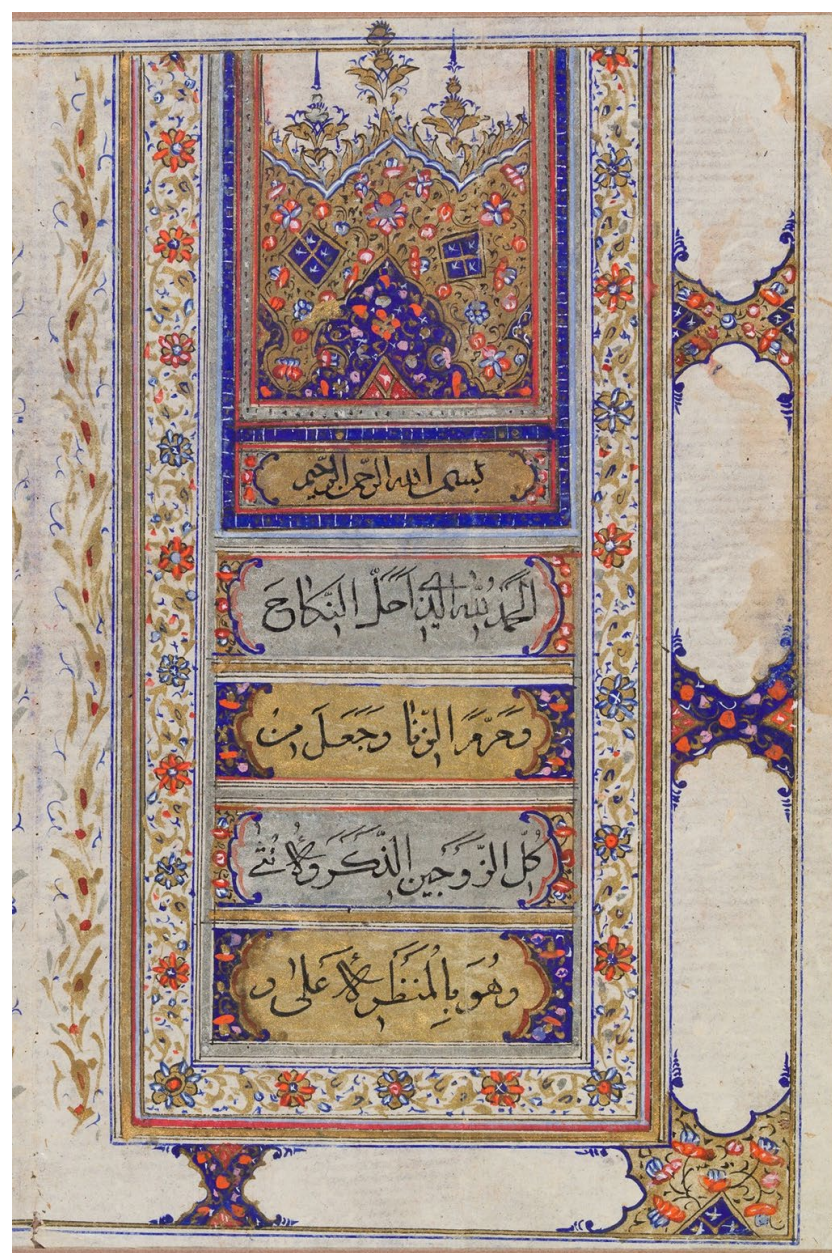 بسم الله الرحمن الرحیم
الحَمْدُ لِلّٰهِ الَّذی اَحَلَّ النِّکاحَ
وَحَرَّمَ الزِّنا وَجَعَلَ مِنْ
کُلِّ الزَّوجَینِ الذَّکَرَ وَالأُنثی
وَهُوَ بِالمَنظَرِ الأَعلی وَ